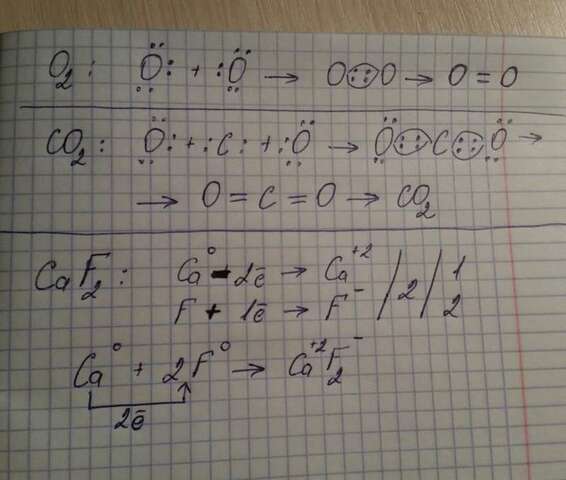 O₂ : Ö: + :Ö → O::O → O = O
CO₂ : Ö: + :C: + :Ö → Ö::C::Ö →
→ O = C = O → CO₂
CaF₂ : Ca⁰ - 2ē → Ca⁺² / 2 / 1
F + 1ē → F⁻ 2
Ca⁰ + 2F⁰ → Ca⁺²F₂⁻
2ē